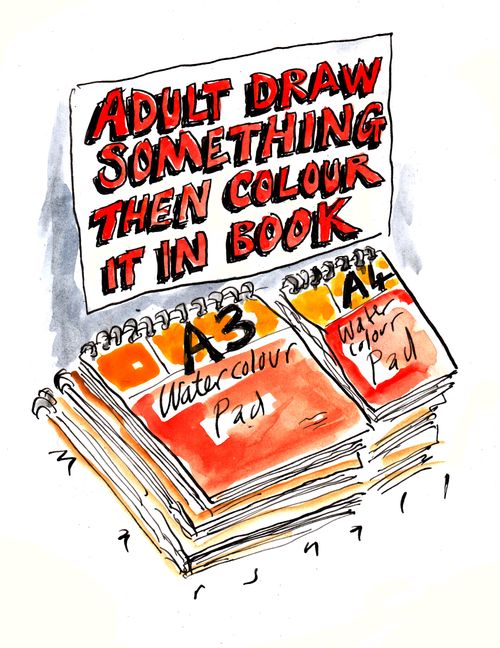 ADULT DRAW
SOMETHING
THEN COLOUR
IT IN BOOK
A3
Watercolour
Pad
A4
Water
colour
Pad